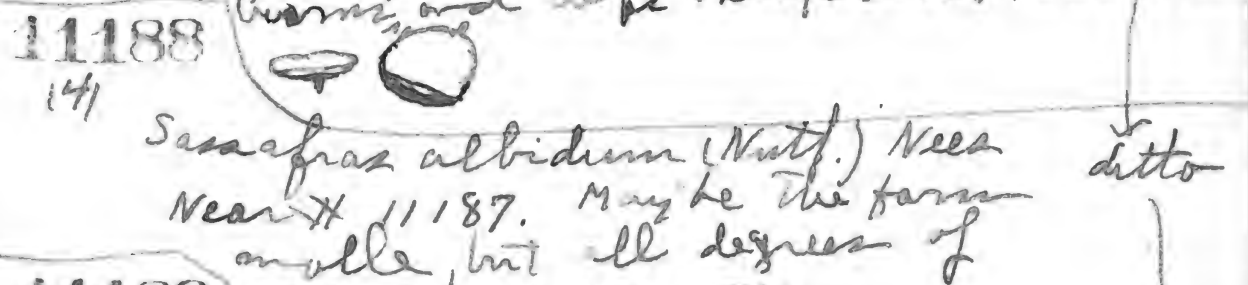 and
11188
(4)
Sassafras albidum (Nutt.) Nees
ditto
Near # 11187. May be the form
molle, but all degrees of